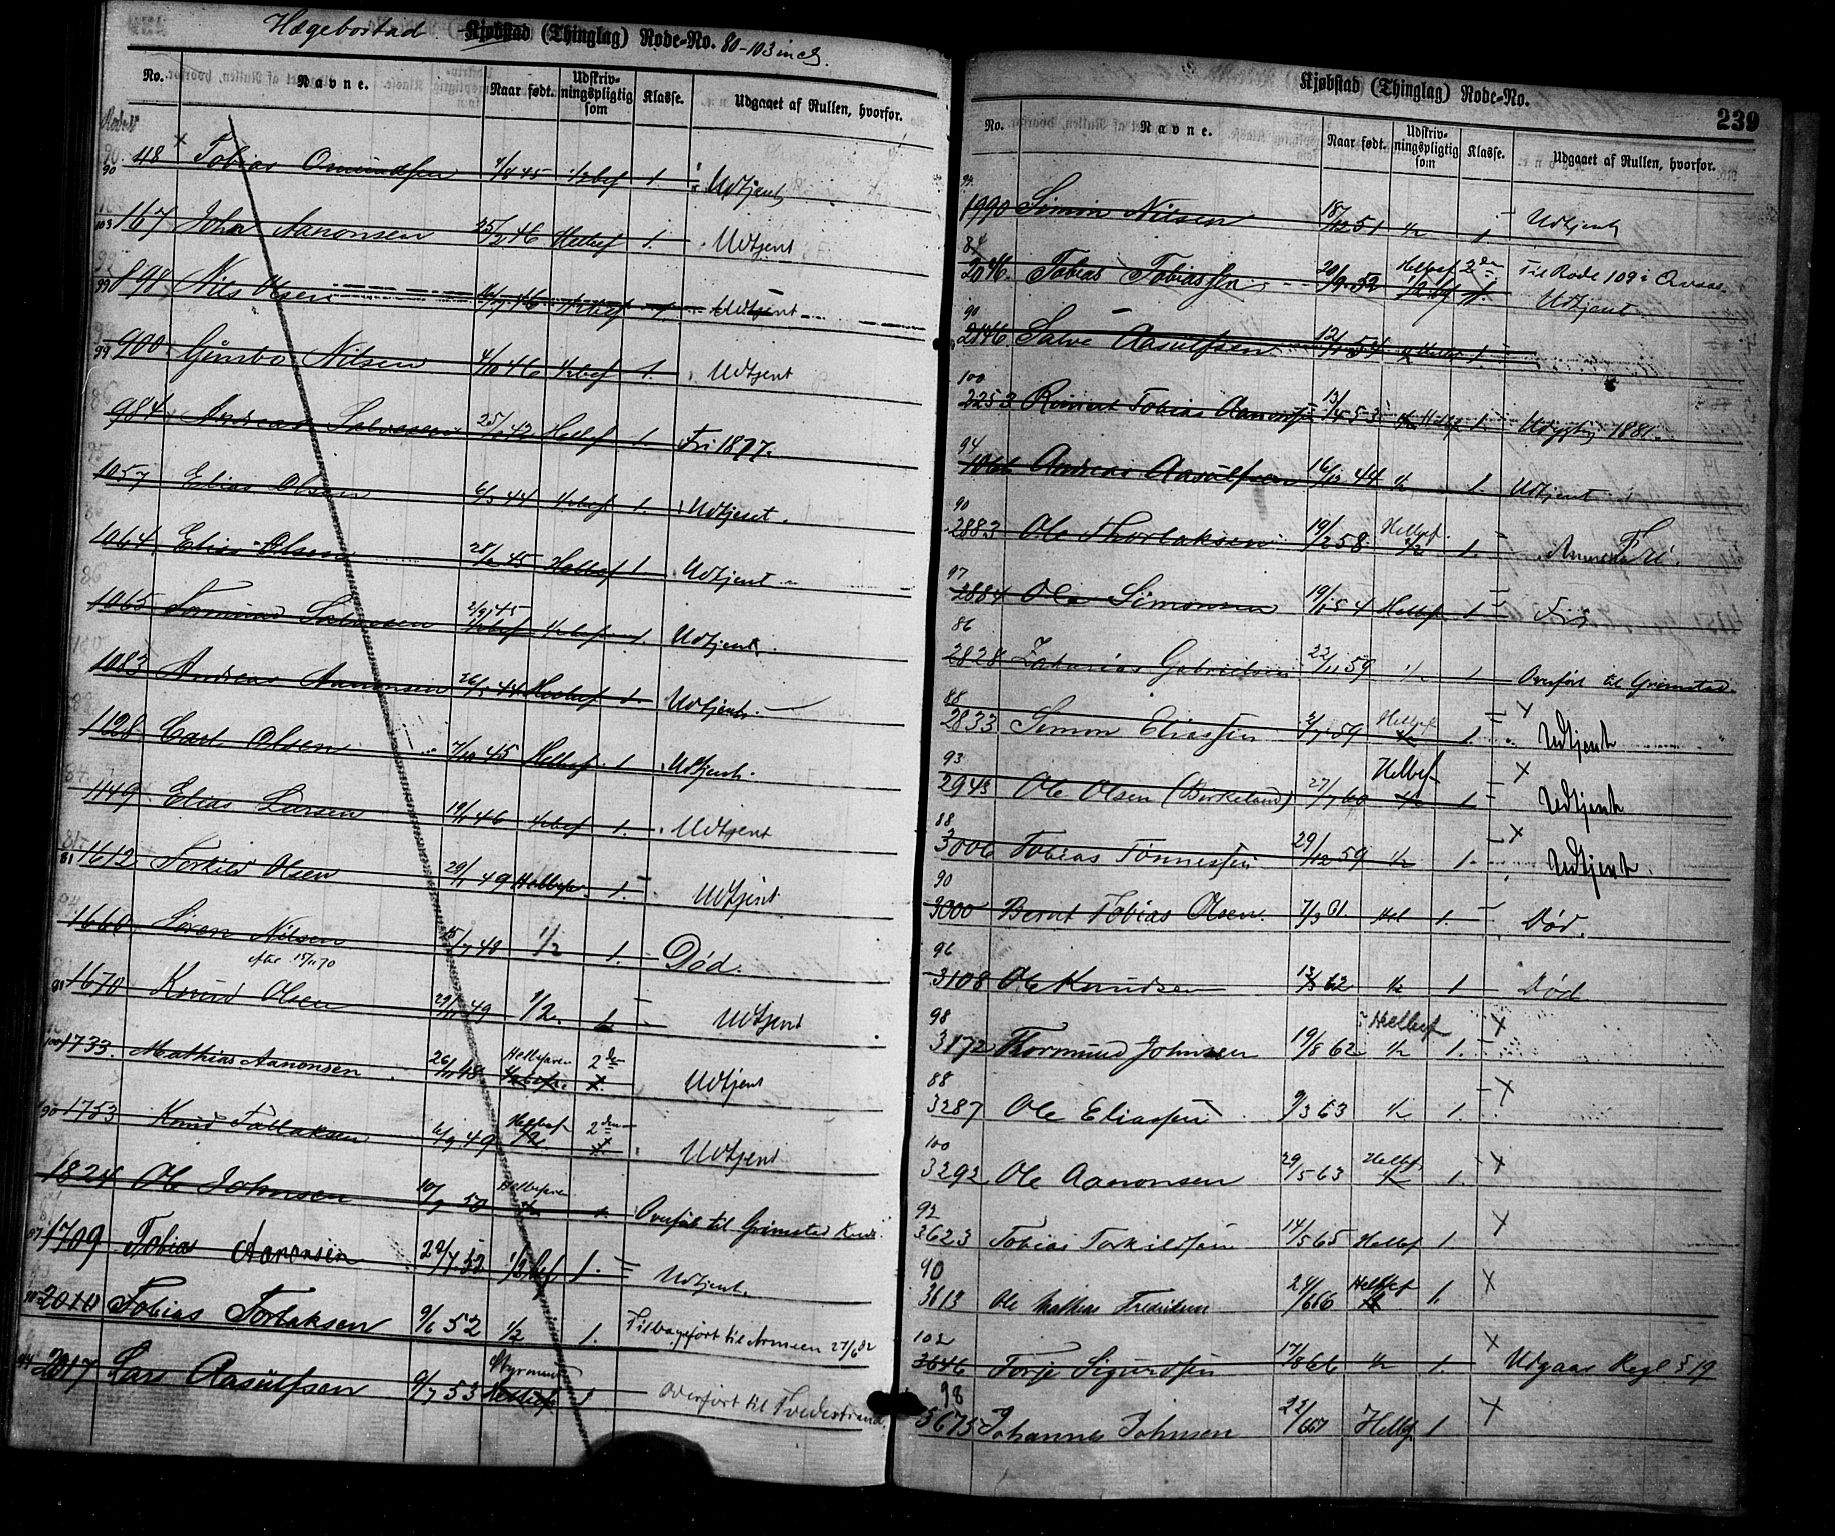 Hægebostad Kjøbstad (Thinglag) Rode-No. 80-103 incl.
No. Navne. Naar født. Udskriv-ningspligtig som Klasse. Udgaaet af Rullen, hvorfor.
90 48 Tobias Omundsen 45 1/2bef 1. Udtjent
103 167 John Aanonsen 25/2 46 Helbef 1. Udtjent
99 898 Nils Olsen 46 1/2bef 1. Udtjent
99 900 Gunbo Nilsen 4/10 46 1/2bef 1. Udtjent
984 Andreas Salvesen 42 Helbef 1. Fri 1877.
1057 Elias Olsen 6/5 44 1/2bef 1. Udtjent.
1064 Elias Olsen 45 Helbef 1. Udtjent
1065 Tormund Salvesen 2/9 45 1/2bef 1. Udtjent.
1083 Andreas Aanonsen 44 Helbef 1. Udtjent.
1128 Carl Olsen 7/10 45 Helbef 1 Udtjent.
1149 Elias Larsen 46 1/2bef 1. Udtjent
81 1612 Torkild Olsen 49 Helbef 1. Udtjent
1660 Søren Nilsen 15/7 48 1/2 1. Død.
81 1670 Knud Olsen 49 1/2. 1 Udtjent
100 1733. Mathias Aanonsen 48 Helbefaren 2den Udtjent
90 1753 Knud Tallaksen 6/9 49 Helbef 1/2 2den Udtjent
1824 Ole Johnsen 10/9 50 Helbefaren 1. Overført til Grimstad Kreds.
87 1709 Tobias Aanonsen 52 1/2bef 1. Udtjent.
90 2010 Tobias Torlaksen 9/6 52 1/2 1. Tilbageført til Armeen 27/6 82
94 2017 Lars Aasulfsen 9/7 53 Styrmand Helbef 1 Overført til Tvedestrand
Kjøbstad (Thinglag) Rode-No. 239
No. Navne. Naar født. Udskriv-ningspligtig som Klasse. Udgaaet af Rullen, hvorfor.
94. 1990 Simon Nilsen 18/12 51 1/2 1. Udtjent
84 2046. Tobias Tobiassen 20/9 52 Helbef 1/2bef 2den 1. Til Rode 109 i Qvaas. Udtjent
90 2146 Salve Aasulfsen 12/1 54 1.
100 2253 Reinert Tobias Aanonsen 13/4 53 1/2 Helbef 1. Udygtig 1881.
94 1066 Andreas Aasulfsen 16/12 44 1/2 1. Udtjent
90 2883 Ole Thorlaksen 19/2 58 Helbef. 1/2 1. Fri.
97 2884 Ole Simonsen 19/1 54 Helbef 1 Fri
86 2828 Zakarias Gabrielsen 22/11 59 1/2 1 Overført til Grimstad.
88 2833 Simon Eliassen 59 Helbef 1/2 1. X Udtjent
93 2943 Ole Olsen (Birkeland) 27/1 60 Helbef 1/2 1 X Udtjent
88 3006 Tobias Tønnessen 29/12 59 1/2 1. X Udtjent.
90 3000 Bernt Tobias Olsen. 7/9 61. Hel 1. Død.
96 3108 Ole Knudsen 62 1/2 1 Død
98 3172 Thormund Johnsen 19/8 62 Helbef 1/2 1. X
88 3287 Ole Eliassen 9/3 63 1/2 1. X
100 3292 Ole Aanonsen 29/5 63 Helbef 1/2 1. X
92 3623 Tobias Torkildsen 14/5 65 Helbef 1. X
90 3613 Ole Mathias Fredriksen 24/6 66 Helbef 1. X
102 3646 Torje Sigurdsen 17/8 66 1/2 1. X Udgaar Regl § 19
98 3675 Johannes Johnsen 22/6 67 Helbf. 1 X